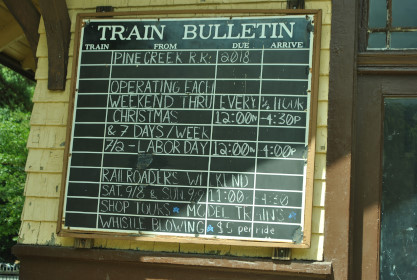 TRAIN BULLETIN
TRAIN FROM DUE ARRIVE
PINE CREEK R.R. 2018
OPERATING EACH
WEEKEND THRU EVERY ½ HOUR
CHRISTMAS 12:00PM - 4:30P
& 7 DAYS/WEEK
7/2 - LABOR DAY 12:00PM - 4:00P
RAILROADERS WEEKEND
SAT. 9/8 & SUN 9/9 11:00 4:30
SHOP TOURS MODEL TRAINS
WHISTLE BLOWING $5 per ride